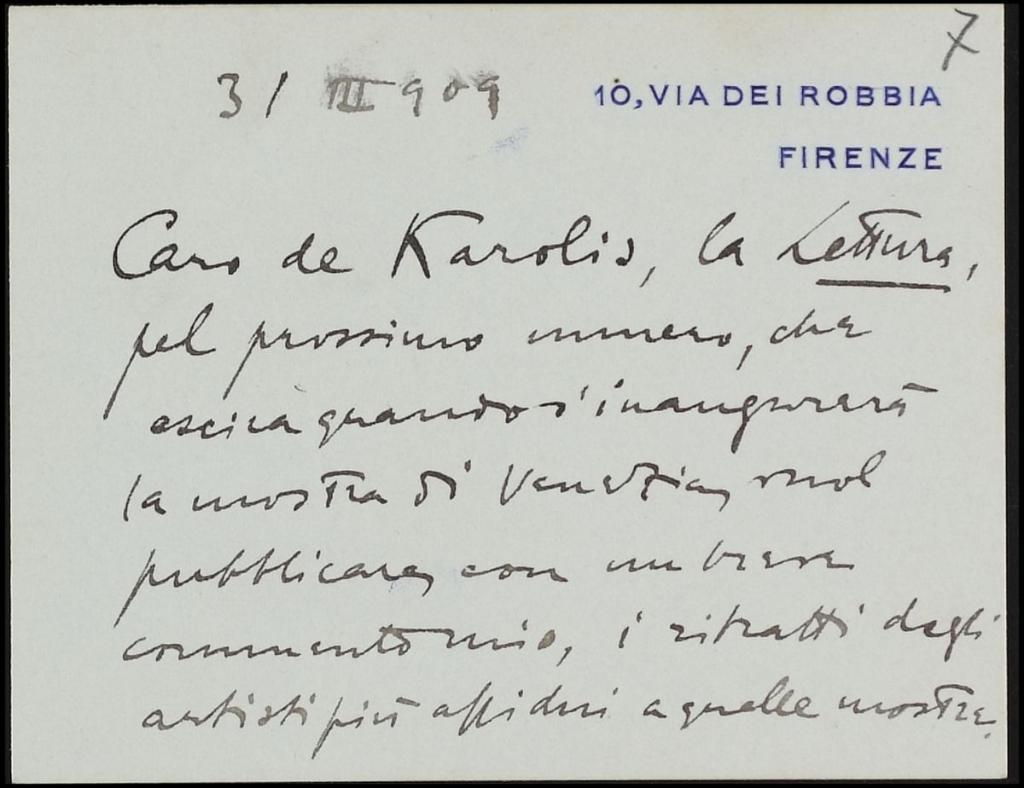 7
31 III 909
10, VIA DEI ROBBIA
FIRENZE
Caro de Karolis, la Lettura,
pel prossimo numero, che
escirà quando s'inaugurerà
la mostra di Venezia, vuol
pubblicare, con un breve
commento mio, i ritratti degli
artisti più assidui a quelle mostre.